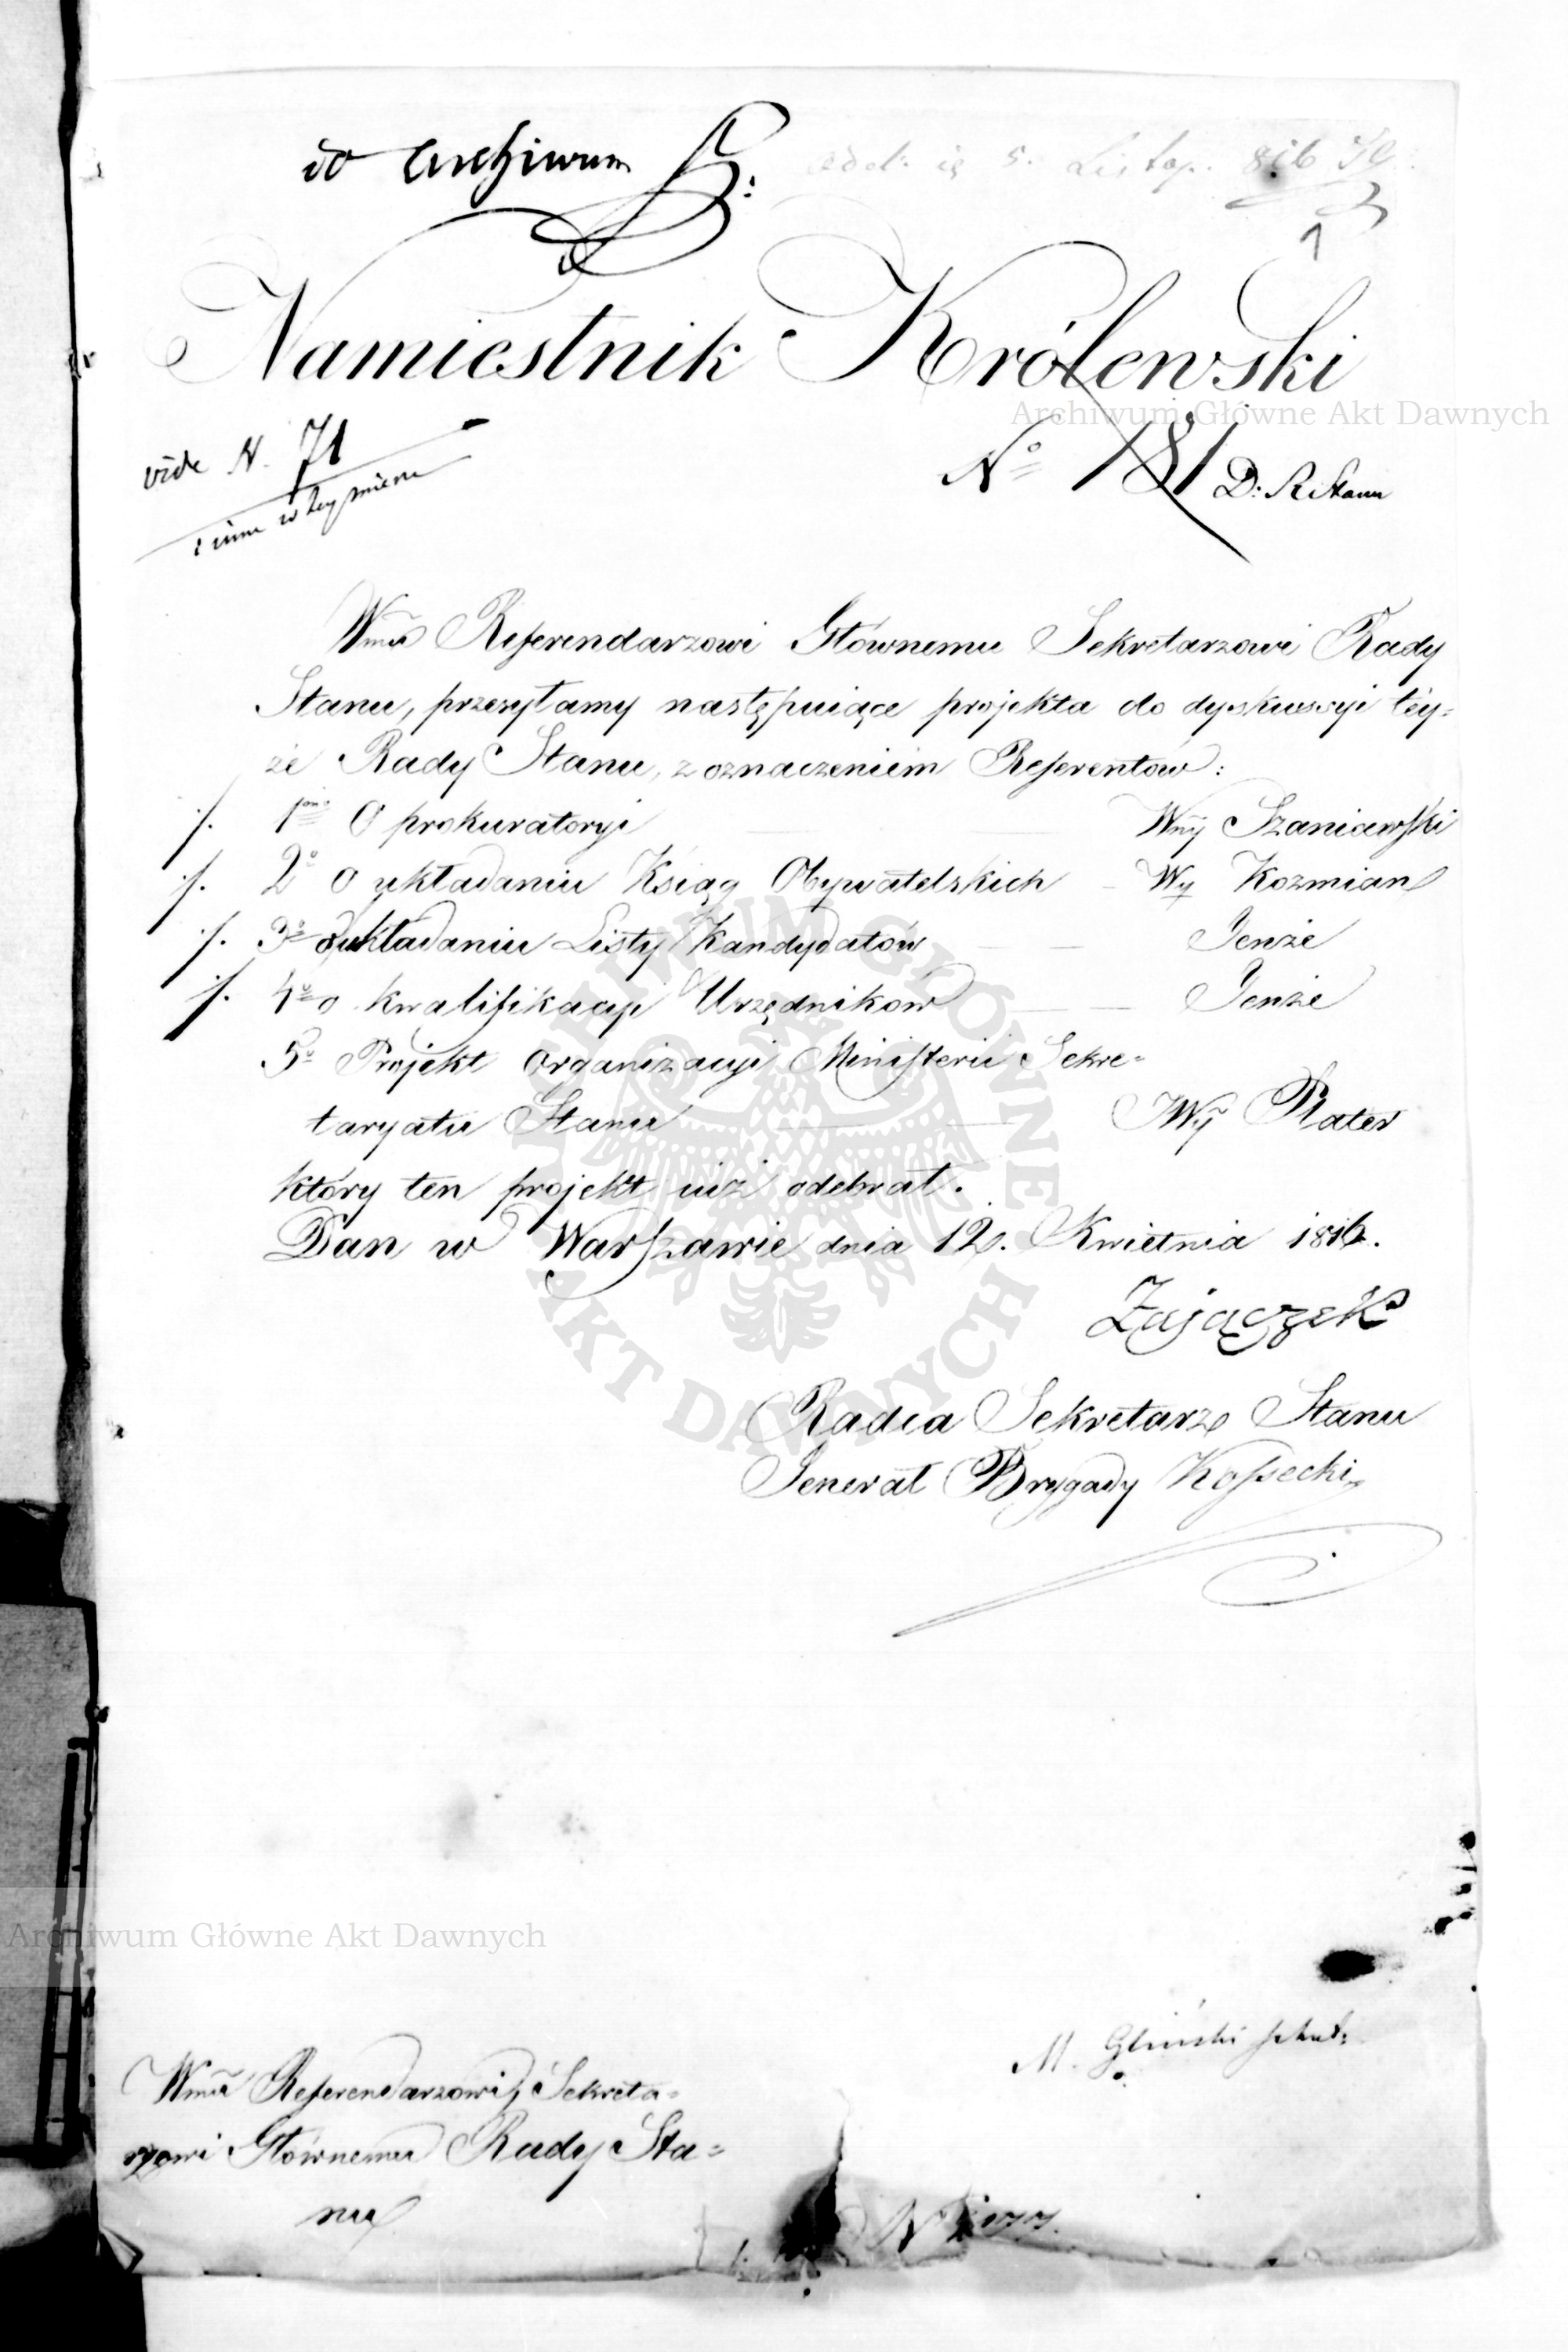 do Archiwum
5. Listop. 816
1
Namiestnik Królewski
Archiwum Główne Akt Dawnych
vide N. 71
i inne w tey mierze
No 181 D: R Stanu
Wmu Referendarzowi Głównemu Sekretarzowi Rady
Stanu, przesyłamy następuiące projekta do dyskussyi téy=
że Rady Stanu, z oznaczeniem Referentów:
1mo O prokuratoryi Wny Szaniawski
2o O układaniu Ksiąg Obywatelskich - Wy Kozmian
3o O układaniu Listy Kandydatów Tenże
4o o kwalifikacyi Urzędników Tenże
5o Projekt organizacyi Ministerii Sekre=
taryatu Stanu JWy Plater
który ten projekt iuż odebrał.
Dan w Warszawie dnia 12. Kwietnia 1816.
Zajączek
Radca Sekretarz Stanu
Jenerał Brygady Kossecki
ARCHIWUM GŁÓWNE AKT DAWNYCH
Archiwum Główne Akt Dawnych
M. Gliński
Wmu Referendarzowi, Sekreta=
rzowi Głównemu Rady Sta=
nu